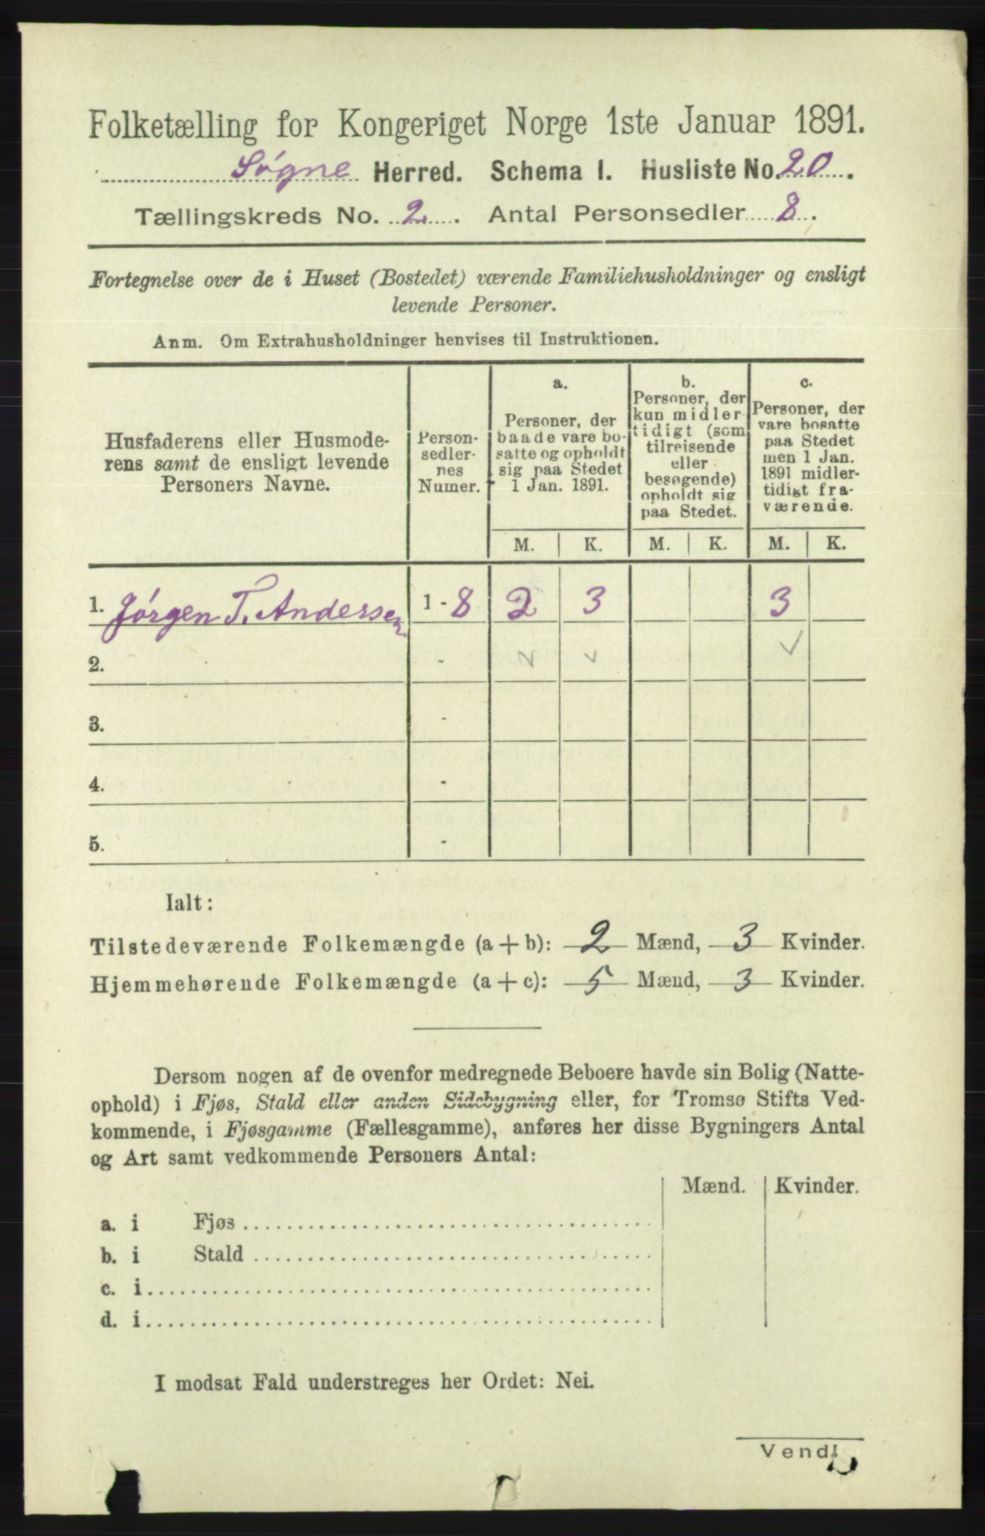 Folketælling for Kongeriget Norge 1ste Januar 1891.
Søgne Herred. Schema I. Husliste No. 20.
Tællingskreds No. 2. Antal Personsedler 8.
Fortegnelse over de i Huset (Bostedet) værende Familiehusholdninger og ensligt
levende Personer.
Anm. Om Extrahusholdninger henvises til Instruktionen.
Husfaderens eller Husmode-
rens samt de ensligt levende
Personers Navne.
Person-
sedler-
nes
Numer.
a.
Personer, der
baade vare bo-
satte og opholdt
sig paa Stedet
1 Jan. 1891.
b.
Personer, der
kun midler-
tidigt (som
tilreisende
eller
besøgende)
opholdt sig
paa Stedet.
c.
Personer, der
vare bosatte
paa Stedet
men 1 Jan.
1891 midler-
tidigt fra-
værende.
M. K. M. K. M. K.
1. Jørgen T. Andersen 1 - 8 2 3 3
2. -
3. -
4. -
5. -
Ialt:
Tilstedeværende Folkemængde (a + b): 2 Mænd, 3 Kvinder.
Hjemmehørende Folkemængde (a + c): 5 Mænd, 3 Kvinder.
Dersom nogen af de ovenfor medregnede Beboere havde sin Bolig (Natte-
ophold) i Fjøs, Stald eller anden Sidebygning eller, for Tromsø Stifts Ved-
kommende, i Fjøsgamme (Fællesgamme), anføres her disse Bygningers Antal
og Art samt vedkommende Personers Antal:
Mænd. Kvinder.
a. i Fjøs
b. i Stald
c. i
d. i
I modsat Fald understreges her Ordet: Nei.
Vend!